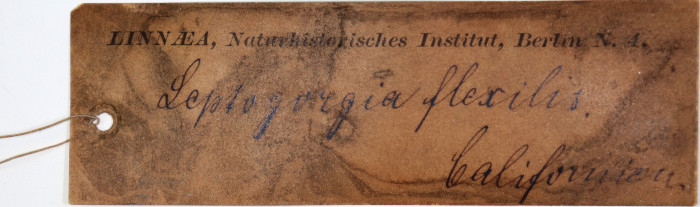 LINNÆA, Naturhistorisches Institut, Berlin N. 4.
Leptogorgia flexilis.
Californien.